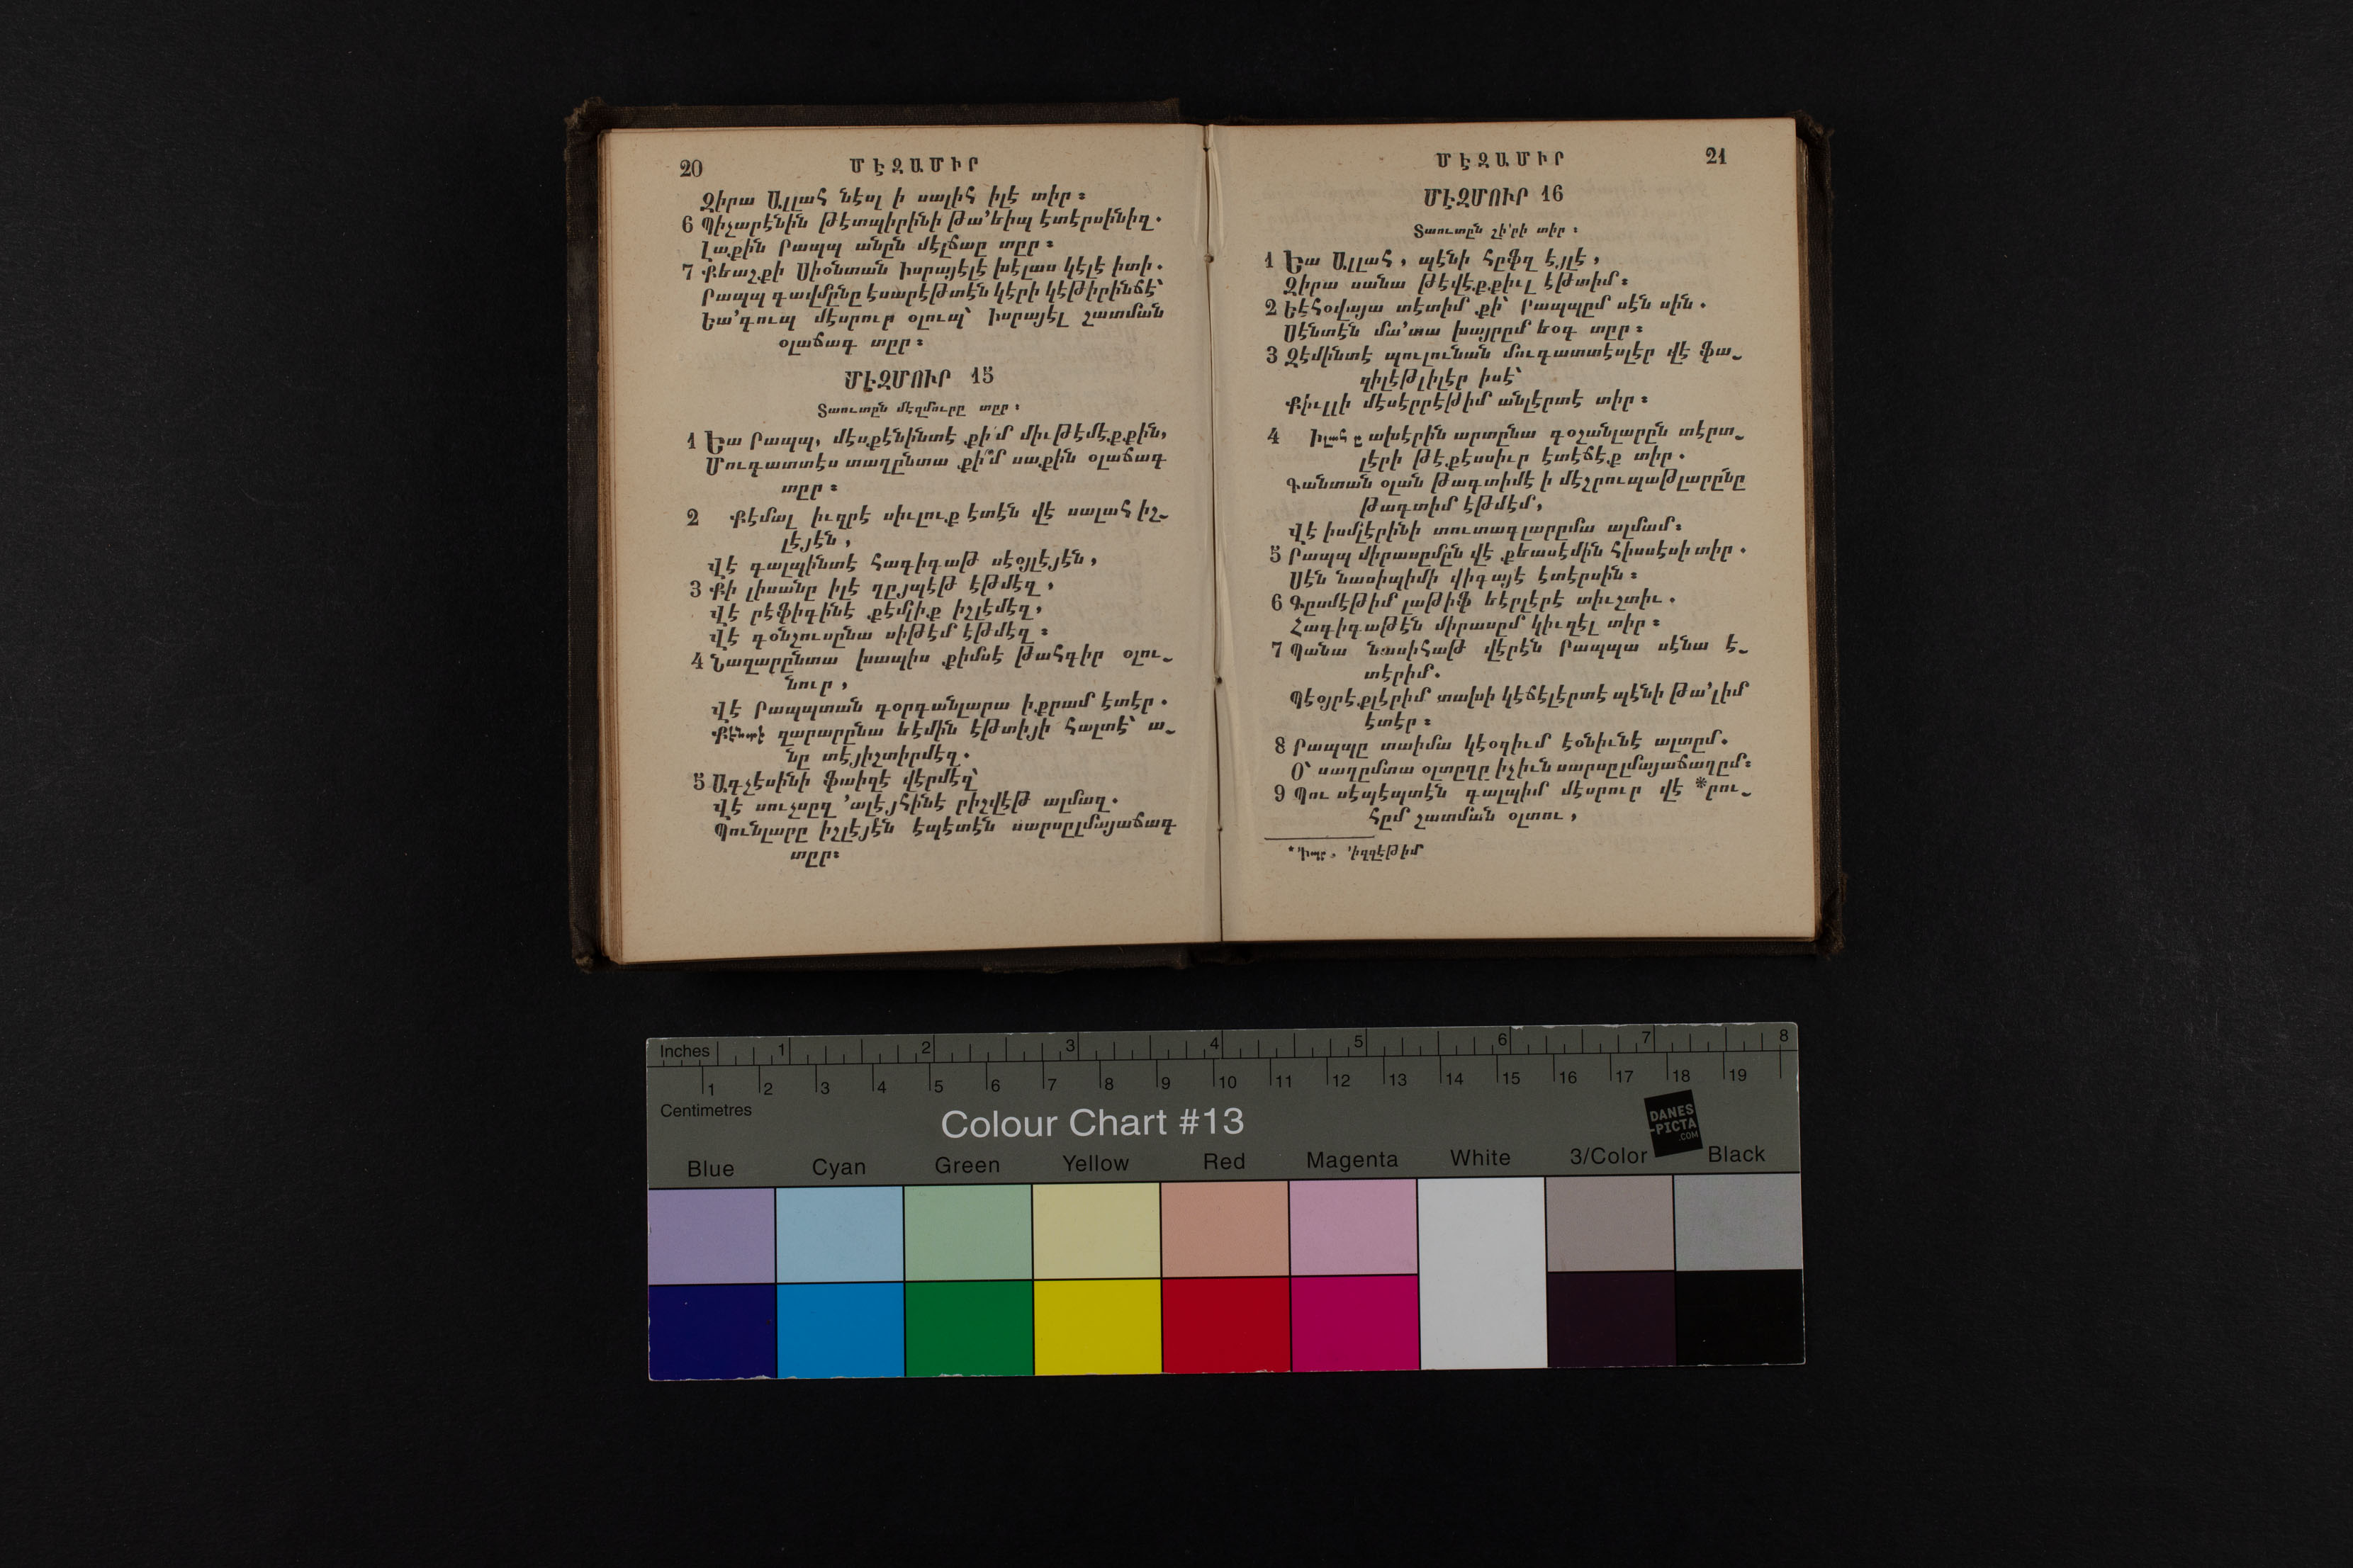 20 ՄԷԶԱՄԻՐ
Զիրա Ալլահ նէսլ ի սալիհ իլէ տիր ։
6 Պիչարէնին թէտպիրինի թա՚եիպ էտէրսինիզ .
Լաքին Րապպ անըն մէլճաը տըր ։
7 Քեաշքի Սիօնտան Իսրայէլէ խէլաս կէլէ իտի .
Րապպ գավմընը էսարէթտէն կէրի կէթիրինճէ՝
Եա՚գուպ մէսրուր օլուպ՝ Իսրայէլ շատման
օլաճագ տըր ։
ՄԷԶՄՈՒՐ 15
Տաուտըն մէզմուրը տըր ։
1 Եա Րապպ, մէսքէնինտէ քի՛մ միւթէմէքքին,
Մուգատտէս տաղընտա քի՞մ սաքին օլաճագ
տըր ։
2 Քէմալ իւզրէ սիւլուք էտէն վէ սալահ իշ֊
լէյէն ,
Վէ գալպինտէ հագիգաթ սէօյլէյէն ,
3 Քի լիսանը իլէ ղըյպէթ էթմէզ ,
Վէ րէֆիգինէ քէմլիք իշլէմէզ ,
Վէ գօնշուսընա սիթէմ էթմէզ ։
4 Նազարընտա խապիս քիմսէ թահգիր օլու֊
նուր ,
Վէ Րապպտան գօրգանլարա իքրամ էտէր .
Քէնտէ զարարընա եէմին էթտիյի հալտէ՝ ա֊
նը տէյիշտիրմէզ .
5 Ագչէսինի ֆաիզէ վէրմէզ՝
Վէ սուչսըզ ՚ալէյհինէ րիշվէթ ալմազ .
Պունլարը իշլէյէն էպէտէն սարսըլմայաճագ
տըր։
ՄԷԶԱՄԻՐ 21
ՄԷԶՄՈՒՐ 16
Տաուտըն շի՚րի տիր ։
1 Եա Ալլահ , պէնի հըֆզ էյլէ ,
Զիրա սանա թէվէքքիւլ էթտիմ ։
2 Եէհօվայա տէտիմ քի՝ Րապպըմ սէն սին .
Սէնտէն մա՚տա խայրըմ եօգ տըր ։
3 Զէմինտէ պուլունան մուգատտէսլէր վէ ֆա֊
զիլէթլիլէր իսէ՝
Քիւլլի մէսէրրէթիմ անլէրտէ տիր ։
4 Իլահ ը ախէրին արտընա գօշանլարըն տէրտ֊
լէրի թէքէսսիւր էտէճէք տիր .
Գանտան օլան թագտիմէ ի մէշրուպաթլարընը
թագտիմ էթմէմ ,
Վէ իսմլէրինի տուտագլարըմա ալմամ ։
5 Րապպ միրասըմըն վէ քեասէմին հիսսէսի տիր .
Սէն նասիպիմի վիգայէ էտէրսին ։
6 Գըսմէթիմ լաթիֆ եէրլէրէ տիւշտիւ .
Հագիգաթէն միրասըմ կիւզէլ տիր ։
7 Պանա նասիհաթ վէրէն Րապպա սէնա է֊
տէրիմ .
Պէօյրէքլէրիմ տախի կէճէլէրտէ պէնի թա՚լիմ
էտէր ։
8 Րապպը տաիմա կէօզիւմ էօնիւնէ ալտըմ .
Օ՝ սաղըմտա օլտըղը իչիւն սարսըլմայաճաղըմ ։
9 Պու սէպէպտէն գալպիմ մէսրուր վէ *րու֊
հըմ շատման օլտու ,
* ՚Իպր . ՚իզզէթիմ
Inches 1 2 3 4 5 6 7 8
1 2 3 4 5 6 7 8 9 10 11 12 13 14 15 16 17 18 19
Centimetres
Colour Chart #13
DANES
-PICTA
.COM
Blue Cyan Green Yellow Red Magenta White 3/Color Black